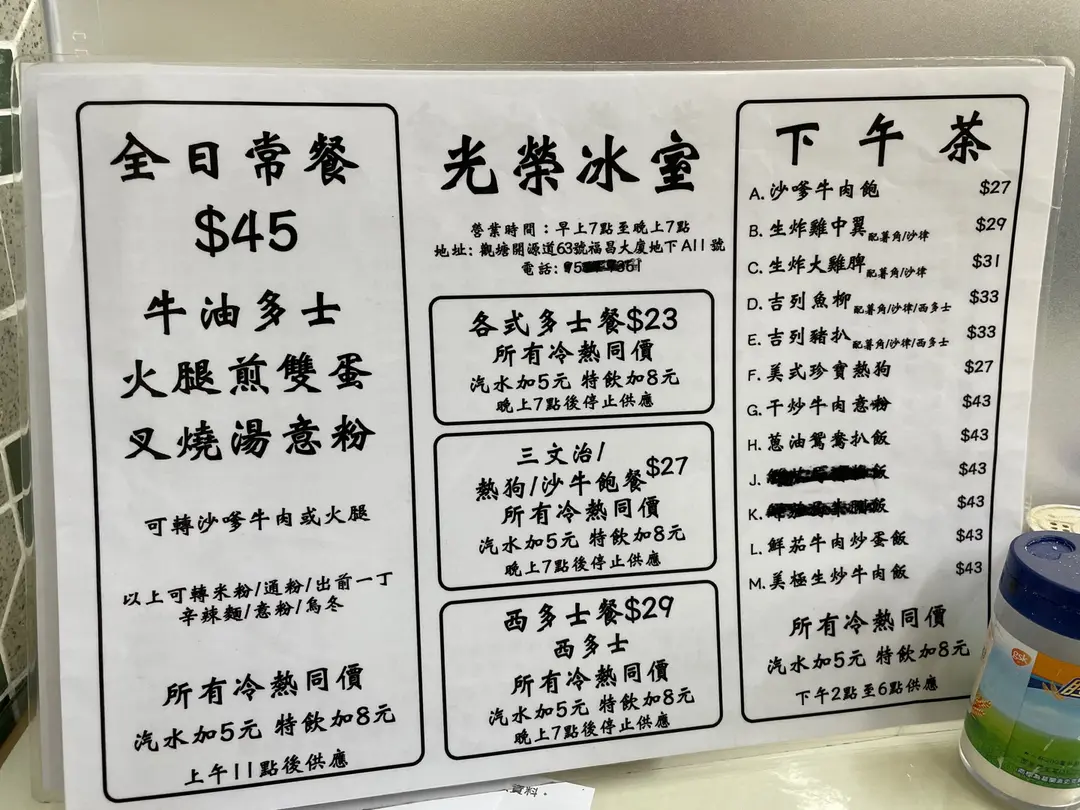 全日常餐
$45
牛油多士
火腿煎雙蛋
叉燒湯意粉
可轉沙嗲牛肉或火腿
以上可轉米粉/通粉/出前一丁
辛辣麵/意粉/烏冬
所有冷熱同價
汽水加5元 特飲加8元
上午11點後供應
光榮冰室
營業時間：早上7點至晚上7點
地址: 觀塘開源道63號福昌大廈地下A11號
電話:
各式多士餐$23
所有冷熱同價
汽水加5元 特飲加8元
晚上7點後停止供應
三文治/
熱狗/沙牛飽餐$27
所有冷熱同價
汽水加5元 特飲加8元
晚上7點後停止供應
西多士餐$29
西多士
所有冷熱同價
汽水加5元 特飲加8元
晚上7點後停止供應
下午茶
A. 沙嗲牛肉飽 $27
B. 生炸雞中翼配薯角/沙律 $29
C. 生炸大雞脾配薯角/沙律 $31
D. 吉列魚柳配薯角/沙律/西多士 $33
E. 吉列豬扒配薯角/沙律/西多士 $33
F. 美式珍寶熱狗 $27
G. 干炒牛肉意粉 $43
H. 蔥油鴛鴦扒飯 $43
J. 飯 $43
K. 飯 $43
L. 鮮茄牛肉炒蛋飯 $43
M. 美極生炒牛肉飯 $43
所有冷熱同價
汽水加5元 特飲加8元
下午2點至6點供應
gsk